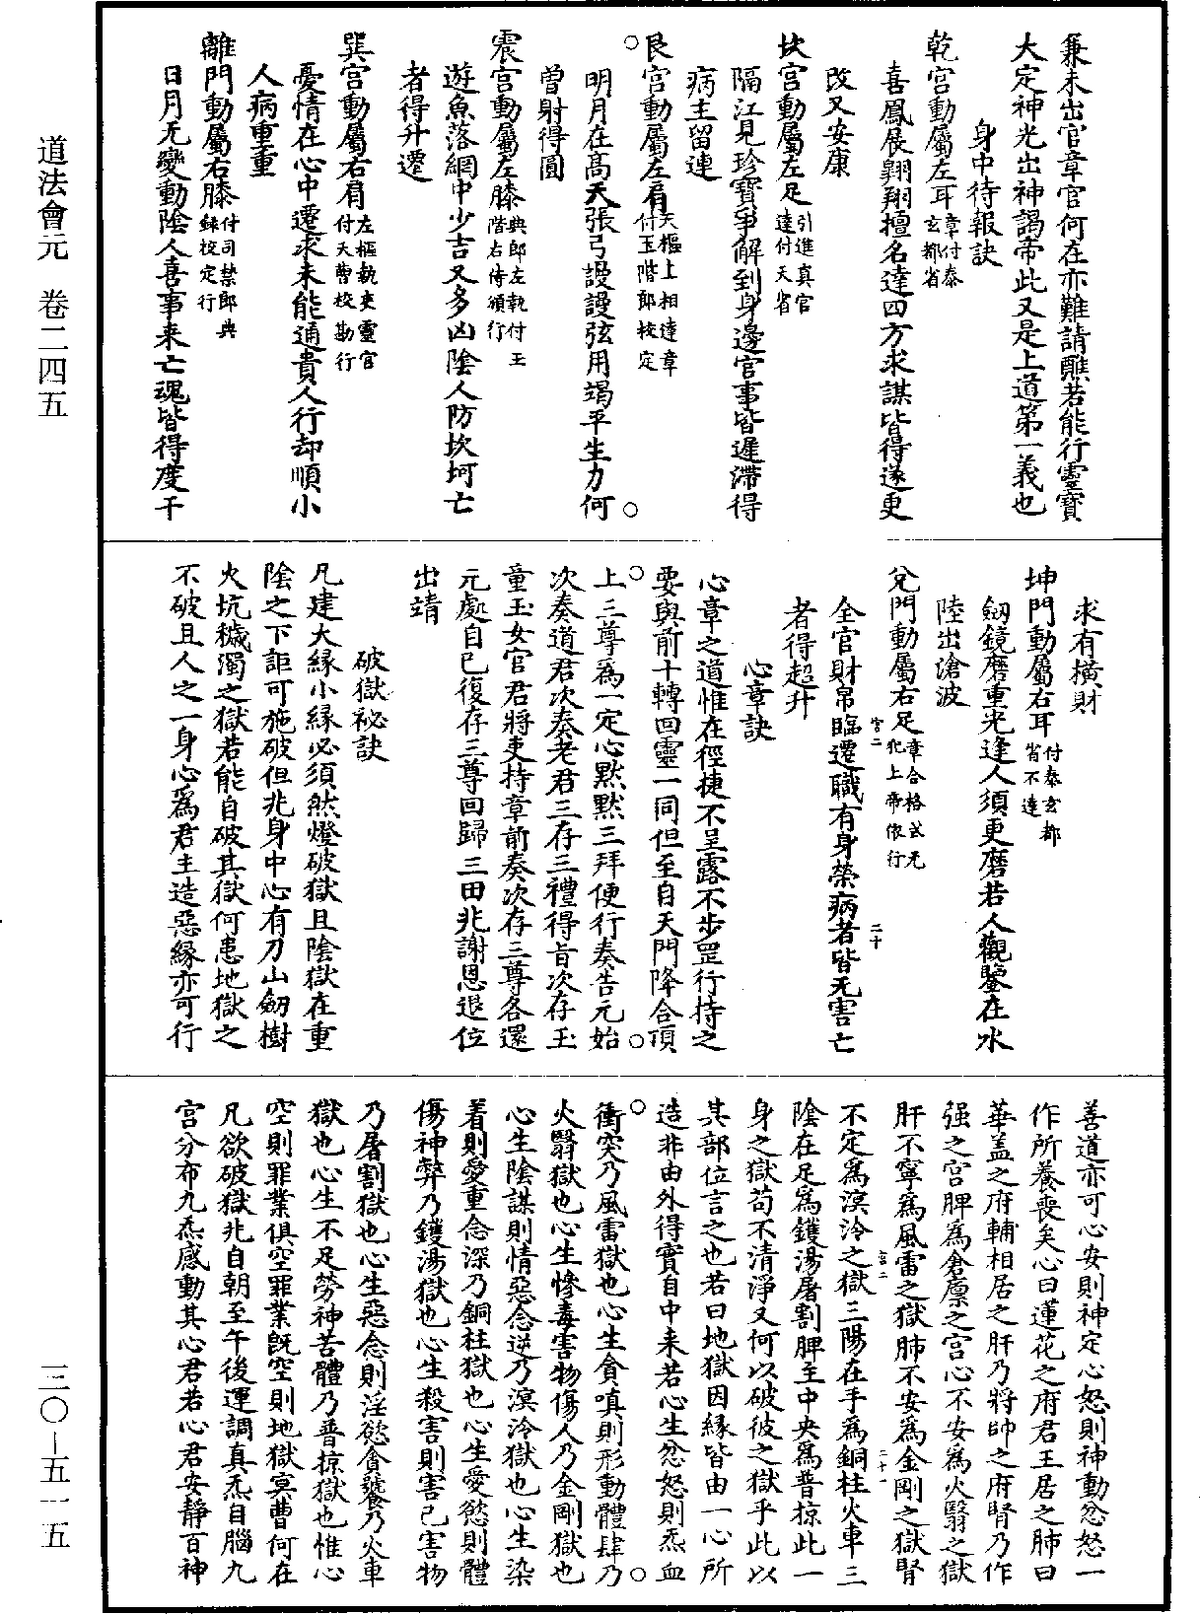 道法會元 卷二四五
三〇—五一五
兼未出官章官何在亦難請醮若能行靈寶
大定神光出神謁帝此又是上道第一義也
身中待報訣
乾宮動屬左耳章付泰玄都省
喜鳳展翱翔擅名達四方求謀皆得遂更
改又安康
坎宮動屬左足引進真官達付天省
隔江見珍寶爭解到身邊官事皆遲滯得
病主留連
艮宮動屬左肩天樞上相達章付玉階郎校定
明月在高天張弓謾謾弦用竭平生力何
曾射得圓
震宮動屬左膝典郎左執付王階右侍頒行
遊魚落網中少吉又多凶陰人防坎坷亡
者得升遷
巽宮動屬右肩左樞執吏靈官付天曹校勘行
憂情在心中遷求未能通貴人行却順小
人病重重
離門動屬右膝付司禁郎典錄校定行
日月无變動陰人喜事来亡魂皆得度干
求有橫財
坤門動屬右耳付泰玄都省不達
劒鏡磨重光逢人須更磨若人觀鑒在水
陸出滄波
兌門動屬右足章合格式元化上帝依行
宮二 二十
全官財帛臨遷職有身榮病者皆无害亡
者得超升
心章訣
心章之道惟在徑捷不呈露不步罡行持之
要與前十轉回靈一同但至自天門降合頂
上三尊為一定心默默三拜便行奏告元始
次奏道君次奏老君三存三禮得旨次存玉
童玉女官君將吏持章前奏次存三尊各還
元處自已復存三尊回歸三田兆謝恩退位
出靖
破獄祕訣
凡建大緣小緣必須然燈破獄且陰獄在重
陰之下詎可施破但兆身中心有刀山劒樹
火坑穢濁之獄若能自破其獄何患地獄之
不破且人之一身心為君主造惡緣亦可行
善道亦可心安則神定心怒則神動忿怒一
作所養喪矣心曰蓮花之府君王居之肺曰
華盖之府輔相居之肝乃將帥之府腎乃作
强之宮脾為倉廪之宮心不安為火翳之獄
肝不寧為風雷之獄肺不安為金剛之獄腎
宮二 二十一
不定為溟泠之獄三陽在手為銅柱火車三
陰在足為鑊湯屠割脾主中央為普掠此一
身之獄苟不清淨又何以破彼之獄乎此以
其部位言之也若曰地獄因緣皆由一心所
造非由外得實自中来若心生忿怒則炁血
衝突乃風雷獄也心生貪嗔則形動體肆乃
火翳獄也心生慘毒害物傷人乃金剛獄也
心生陰謀則情惡念逆乃溟泠獄也心生染
着則愛重念深乃銅柱獄也心生愛慾則體
傷神弊乃鑊湯獄也心生殺害則害己害物
乃屠割獄也心生惡念則淫慾貪饕乃火車
獄也心生不足勞神苦體乃普掠獄也惟心
空則罪業俱空罪業旣空則地獄㝠曹何在
凡欲破獄兆自朝至午後運調真炁自腦九
宮分布九炁感動其心君若心君安靜百神